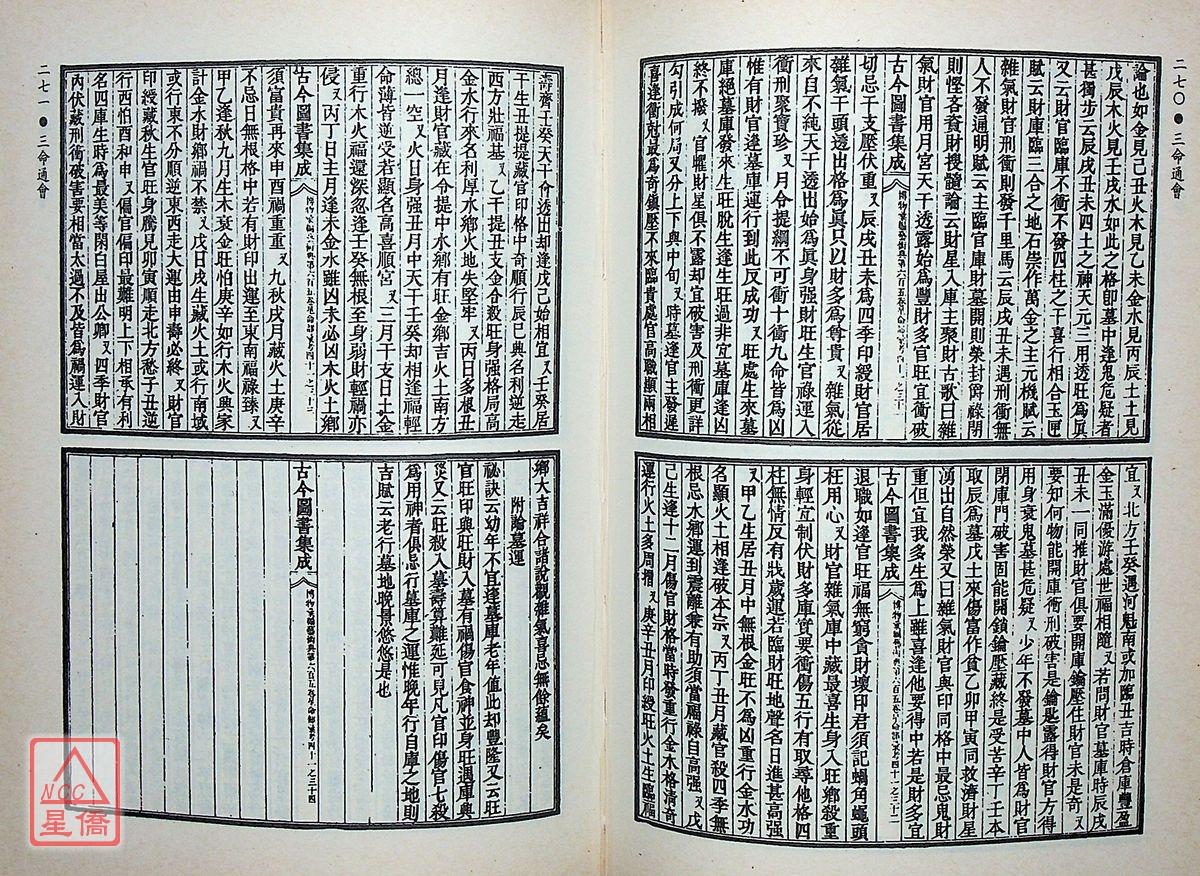 二七〇 ● 三命通會
論也如金見己丑火木見乙未金水見丙辰土土見
戊辰木火見壬戌水如此之格卽墓中逢鬼危疑者
甚獨步云辰戌丑未四土之神天元三用透旺爲眞
又云財官臨庫不衝不發四柱之干喜行相合玉匣
賦云財庫臨三合之地石崇作萬金之主元機賦云
雜氣財官刑衝則發千里馬云辰戌丑未遇刑衝無
人不發通明賦云主臨官庫財墓開則榮封爵祿閉
則慳吝資財搜髓論云財星入庫主聚財古歌曰雜
氣財官用月宮天干透露始爲豐財多官旺宜衝破
切忌干支壓伏重又辰戌丑未爲四季印綬財官居
古今圖書集成
雜氣干頭透出格爲眞只以財多爲尊貴又雜氣從
來自不純天干透出始爲眞身强財旺生官祿運入
衝刑聚寶珍又月令提綱不可衝十衝九命皆爲凶
惟有財官逢墓庫運行到此反成功又旺處生來墓
庫絕墓庫發來生旺脫生逢庫旺過非宜墓庫逢凶
終不撥又官曜財星俱不露却宜破害及刑衝更詳
勾引成何局又分上下與中旬又時墓逢官主發遲
喜逢衝尅最爲奇鎭壓不來臨貴處官高職顯兩相
宜又北方壬癸遇河魁南或加臨丑吉時倉庫豐盈
金玉滿優游處世福相隨又若問財官墓庫時辰戌
丑未一同推財官俱要開庫鑰壓住財官未是奇又
要知何物能開庫衝刑破害是鑰匙露得財官方得
用身衰鬼墓甚危疑又少年不發墓中人皆爲財官
閉庫門破害固能開鎖鑰壓藏終是受苦辛丁壬本
取辰爲墓戊土來傷富作貧乙卯甲寅同救濟財星
湧出自然榮又曰雜氣財官與印同格中最忌鬼財
重但宜我多生爲上雖喜逢他要得中若是財多宜
古今圖書集成
退職如逢官旺福無窮貪財壞印君須記蝸角蠅頭
枉用心又財官雜氣庫中藏最喜生身入旺鄉殺重
身輕宜制伏財多庫實要衝傷五行有取尋他格四
柱無情反有戕歲運若臨財旺地聲名日進甚高强
又甲乙生居丑月中無根金旺不爲凶重行金水功
名顯火土相逢破本宗又丙丁丑月藏官殺四季無
根忌水鄉運到震離兼有助須當福祿自高强又戊
己生逢十二月傷官財格當時發重行金水格淸奇
運行火土多周折又庚辛丑月印綬旺火土生臨福
二七一 ● 三命通會
壽齊壬癸天干令透出却逢戊己始相宜又壬癸居
干生丑提提藏官印格中奇順行辰巳興名利逆走
西方壯福基又乙干提丑支金合殺旺身强格局高
金水行來名利厚水鄉火地失堅牢又丙日多根丑
月逢財官藏在令提中水鄉有旺金鄉吉火土南方
總一空又火日身强丑月中天干壬癸却相逢福輕
命薄皆逆受若顯名高喜順宮又三月干支日土金
重行木火福還深忽逢壬癸無根至身弱財輕禍亦
侵又丙丁日主月逢未金水雖凶未必凶木火土鄉
古今圖書集成
須富貴再來申酉禍重重又九秋戌月藏火土庚辛
不忌日無根格中若有財印出運至東南福祿臻又
甲乙逢秋九月生木衰金旺怕庚辛如行木火興家
計金水財鄉禍不禁又戊日戌生藏火土或行南域
或行東不分順逆東西走大運由申壽必終又財官
印綬藏秋生官旺身騰見卯寅順走北方愁子丑逆
行西怕酉和申又偏官偏印最難明上下相承有利
名四庫生時爲最美等閑白屋出公卿又四季財官
內伏藏刑衝破害要相當太過不及皆爲禍運入財
鄉大吉祥合諸說觀雜氣喜忌無餘蘊矣
附論墓運
祕訣云幼年不宜逢墓庫老年值此却豐隆又云旺
官旺印與旺財入墓有禍傷官食神並身旺遇庫興
災又云旺殺入墓壽算難延可見凡官印傷官七殺
爲用神者俱忌行墓庫之運惟晚年行自庫之地則
吉賦云老行墓地晚景悠悠是也
古今圖書集成
NCC
星僑